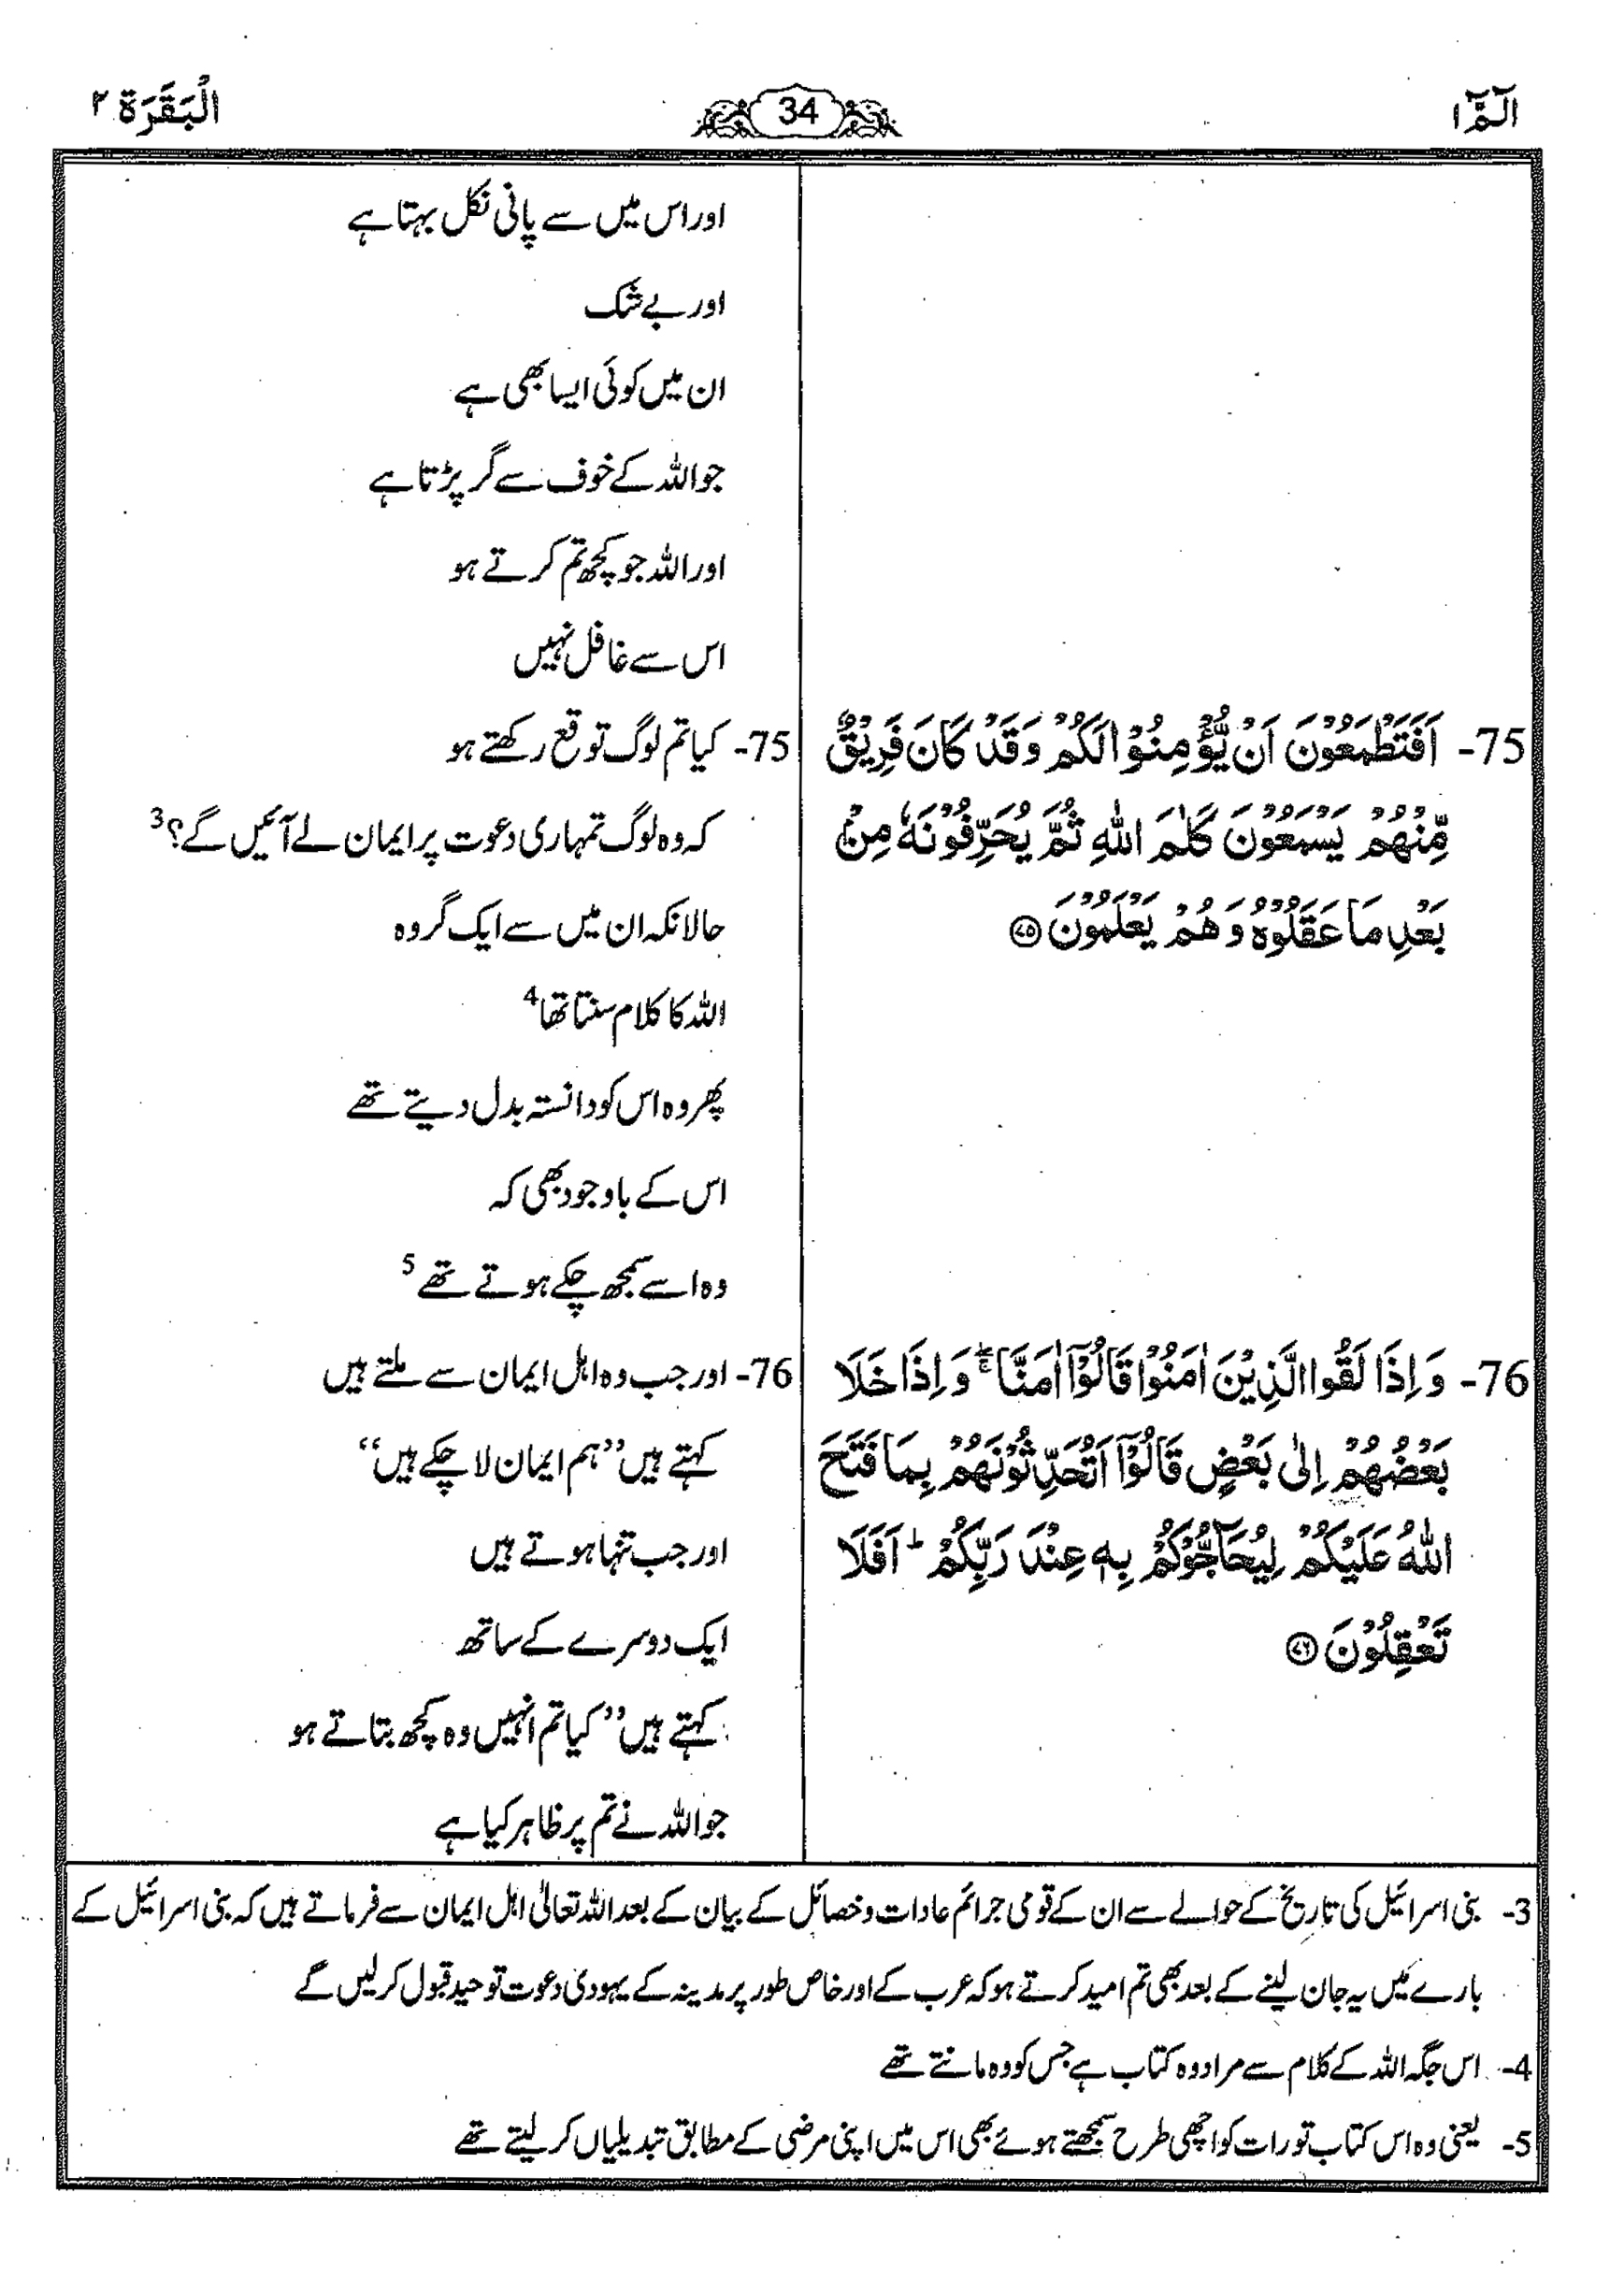 الٓمّٓ ١
34
الْبَقَرَة ٢
اور اس میں سے پانی نکل بہتا ہے
اور بے شک
ان میں کوئی ایسا بھی ہے
جو اللہ کے خوف سے گر پڑتا ہے
اور اللہ جو کچھ تم کرتے ہو
اس سے غافل نہیں
75- اَفَتَطْمَعُوْنَ اَنْ يُّؤْمِنُوْا لَكُمْ وَقَدْ كَانَ فَرِيْقٌ
مِّنْهُمْ يَسْمَعُوْنَ كَلٰمَ اللّٰهِ ثُمَّ يُحَرِّفُوْنَهٗ مِنْۢ
بَعْدِ مَا عَقَلُوْهُ وَهُمْ يَعْلَمُوْنَ ۝٧٥
75- کیا تم لوگ توقع رکھتے ہو
کہ وہ لوگ تمہاری دعوت پر ایمان لے آئیں گے؟3
حالانکہ ان میں سے ایک گروہ
اللہ کا کلام سنتا تھا4
پھر وہ اس کو دانستہ بدل دیتے تھے
اس کے باوجود بھی کہ
وہ اسے سمجھ چکے ہوتے تھے5
76- وَاِذَا لَقُوا الَّذِيْنَ اٰمَنُوْا قَالُوْٓا اٰمَنَّا ۖۚ وَاِذَا خَلَا
بَعْضُهُمْ اِلٰى بَعْضٍ قَالُوْٓا اَتُحَدِّثُوْنَهُمْ بِمَا فَتَحَ
اللّٰهُ عَلَيْكُمْ لِيُحَآجُّوْكُمْ بِهٖ عِنْدَ رَبِّكُمْ ؕ اَفَلَا
تَعْقِلُوْنَ ۝٧٦
76- اور جب وہ اہل ایمان سے ملتے ہیں
کہتے ہیں ”ہم ایمان لا چکے ہیں“
اور جب تنہا ہوتے ہیں
ایک دوسرے کے ساتھ
کہتے ہیں ”کیا تم انہیں وہ کچھ بتاتے ہو
جو اللہ نے تم پر ظاہر کیا ہے
3- بنی اسرائیل کی تاریخ کے حوالے سے ان کے قومی جرائم عادات و خصائل کے بیان کے بعد اللہ تعالیٰ اہل ایمان سے فرماتے ہیں کہ بنی اسرائیل کے
بارے میں یہ جان لینے کے بعد بھی تم امید کرتے ہو کہ عرب کے اور خاص طور پر مدینہ کے یہودی دعوت توحید قبول کر لیں گے
4- اس جگہ اللہ کے کلام سے مراد وہ کتاب ہے جس کو وہ مانتے تھے
5- یعنی وہ اس کتاب تورات کو اچھی طرح سمجھتے ہوئے بھی اس میں اپنی مرضی کے مطابق تبدیلیاں کر لیتے تھے